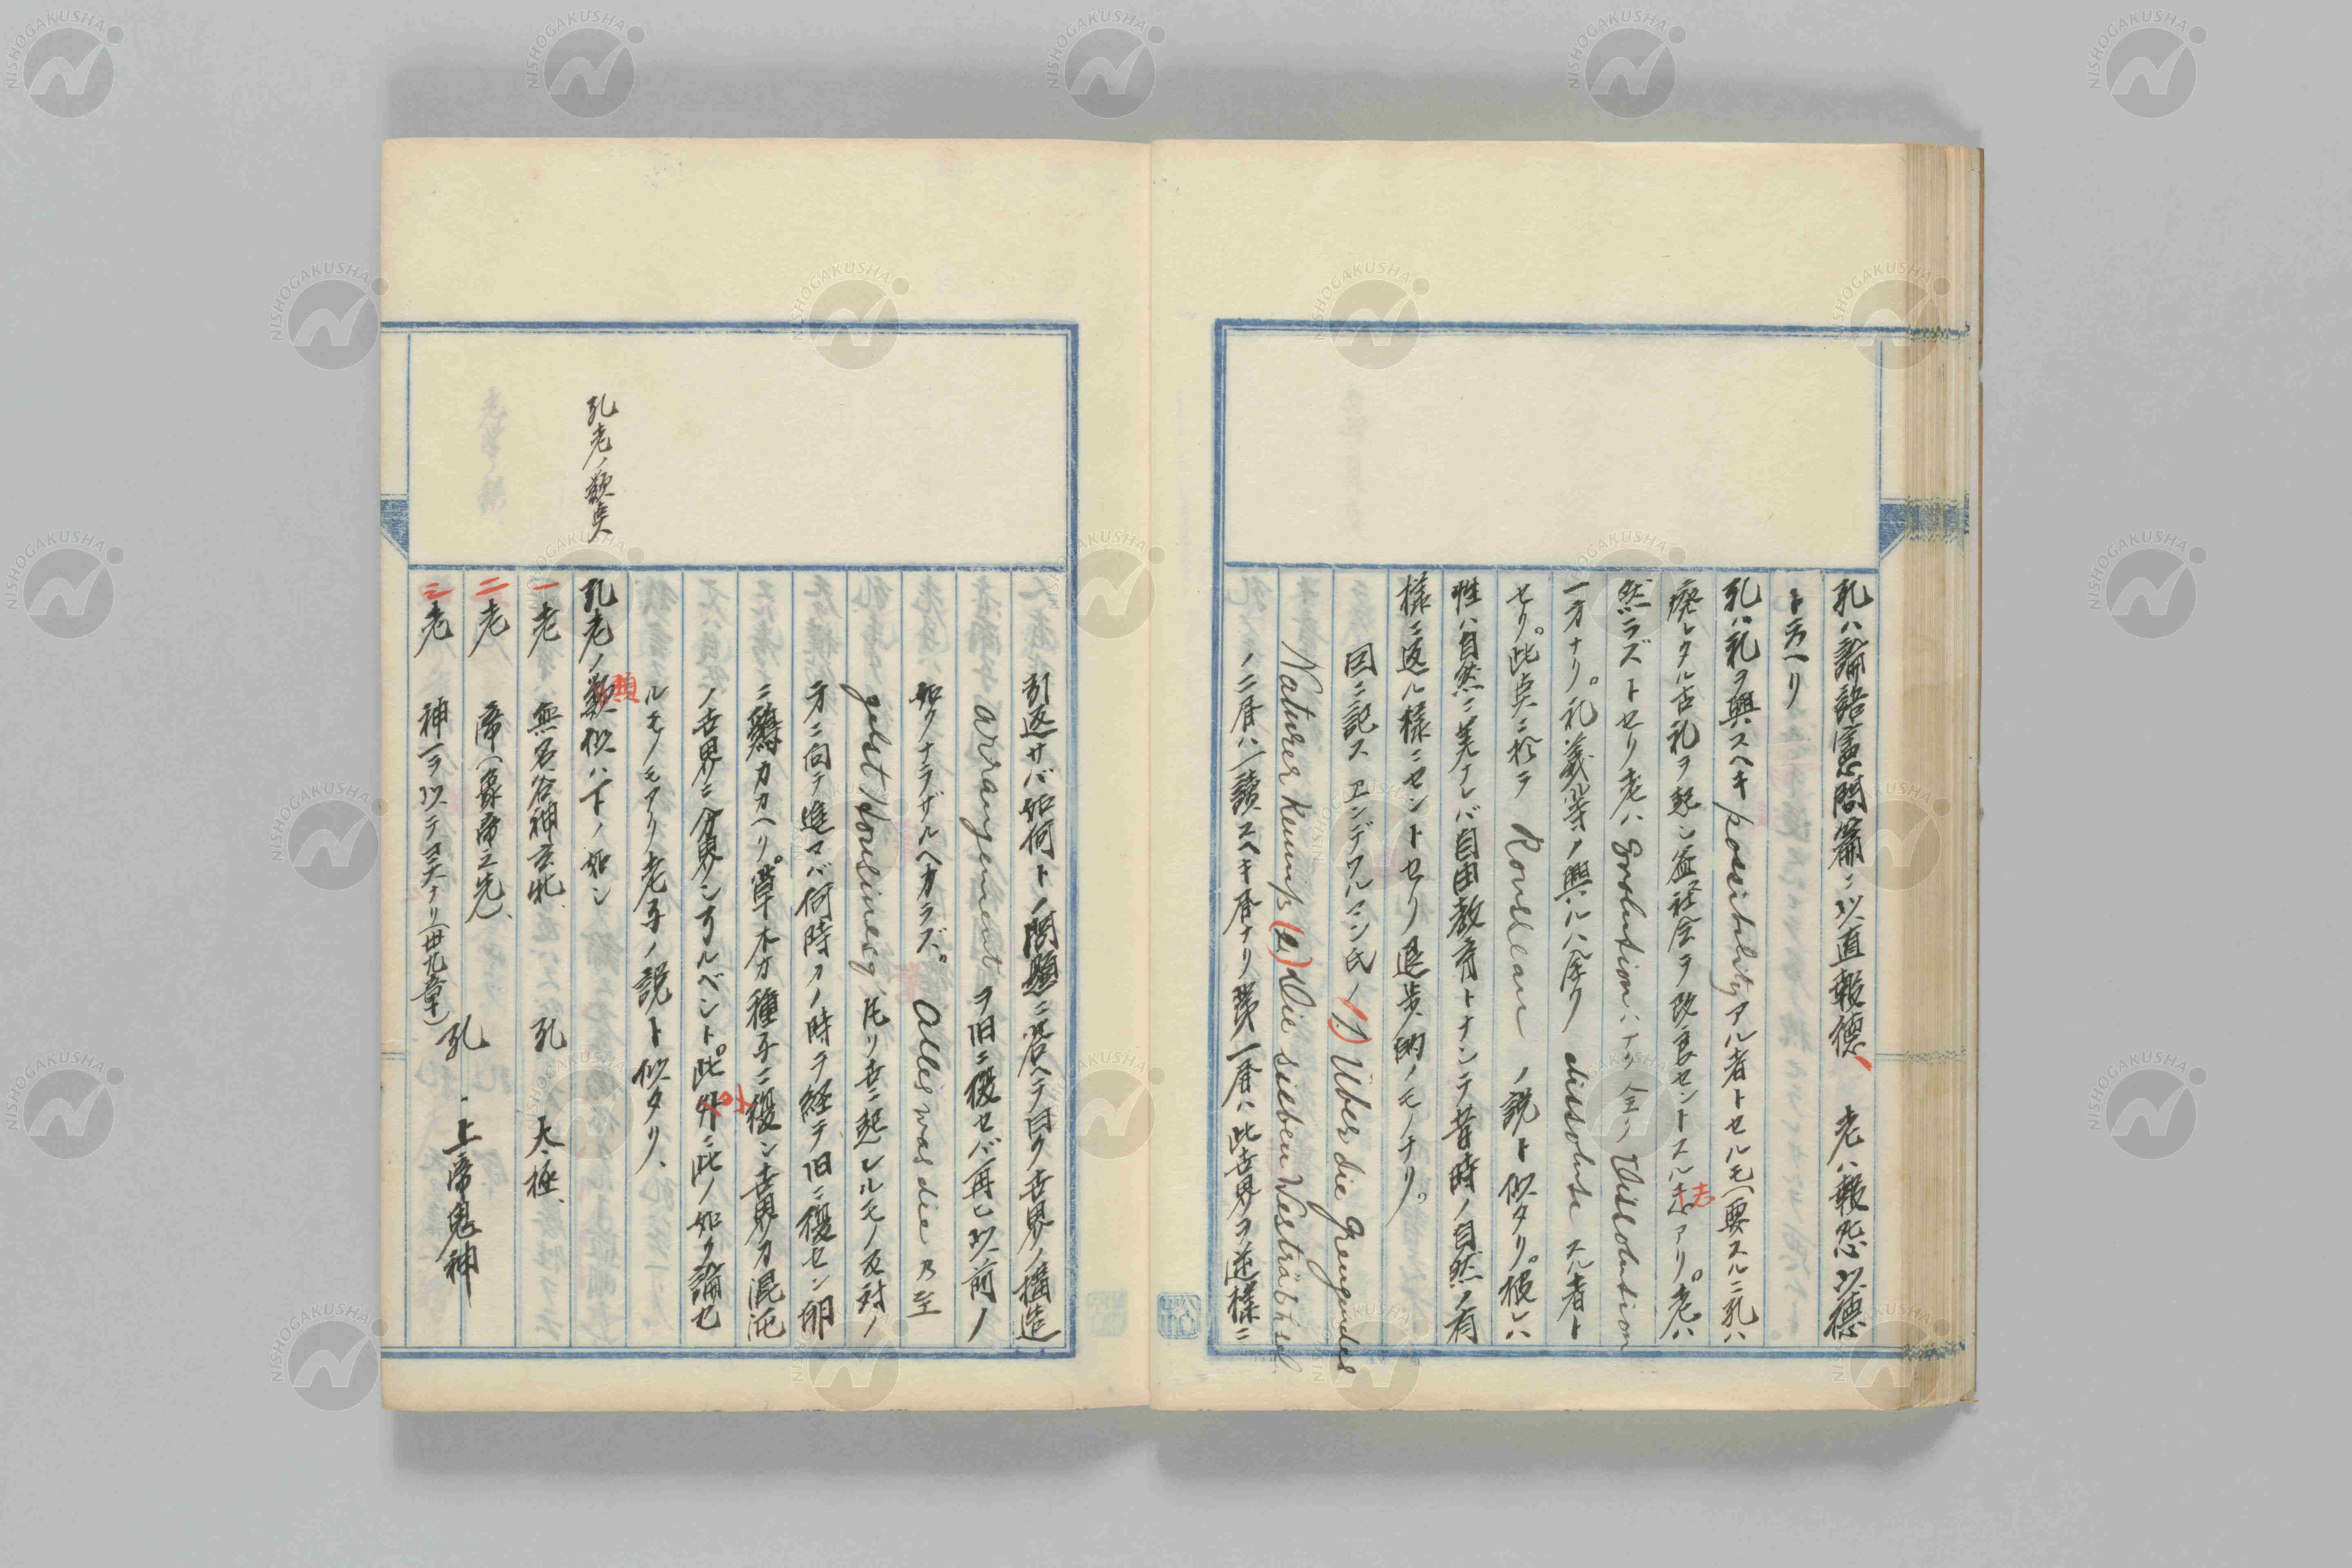 孔ハ論語憲問篇ニ以直報德、老ハ報怨以德
ト云ヘリ
孔ハ礼ヲ興スヘキ possibility アル者トセルモ(要スルニ孔ハ
廃レタル古礼ヲ起シ益社会ヲ改良セントスル志アリ。老ハ
然ラズトセリ老ハ Evolution ハナク全ク Dissolution
一方ナリ。礼義等ノ興ルハ全ク dissolute スル者ト
セリ。此点ニ於テ Rousseau ノ説ト似タリ。彼レハ
性ハ自然ニ美ナレバ自由教育トナシテ昔時ノ自然ノ有
様ニ返ル様ニセントセリ退歩的ノモノナリ。
因ニ記ス エンデワルマン氏ノ(1) Über die Grenzen des
Naturerkennens (2) Die sieben Welträthsel
ノ二 ハ一讀スヘキ ナリ第一 ハ此世界ヲ逆様ニ
引返サバ如何トノ問題ニ答ヘテ曰ク世界ノ構造
arrangement ヲ旧ニ復セバ再ヒ以前ノ
如クナラザルヘカラズ。 Alles was die 乃至
凡ソ世ニ起レルモノ反対ノ
方ニ向テ進マバ何時カノ時ヲ経テ旧ニ復セン卵
ニ鶏カカヘリ。草木カ種子ニ復シ世界カ混沌
ノ世界ニ分界シ ルベシト。此外ニ此ノ如ク論セ
ルモノモアリ老子ノ説ト似タリ、
孔老ノ類似ハ下ノ如シ
孔老ノ類点
一 老 無名谷神玄牝 孔 太極、
二 老 帝(象帝之先)、 孔 上帝鬼神
三 老 神一ヲ以テヨシナリ(卅九章)